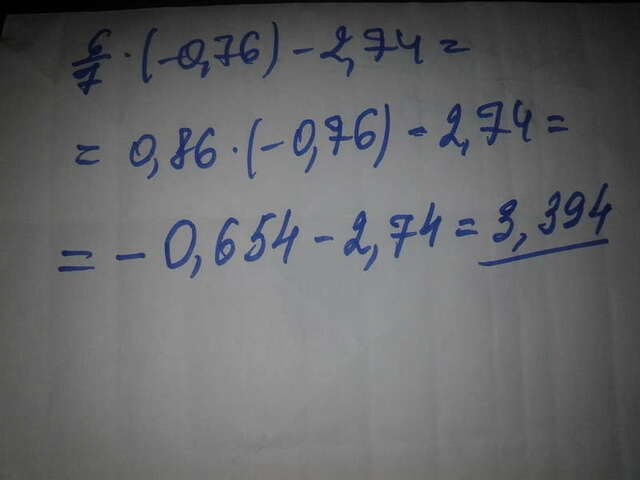 6/7 · (-0,76) - 2,74 =
= 0,86 · (-0,76) - 2,74 =
= - 0,654 - 2,74 = 3,394